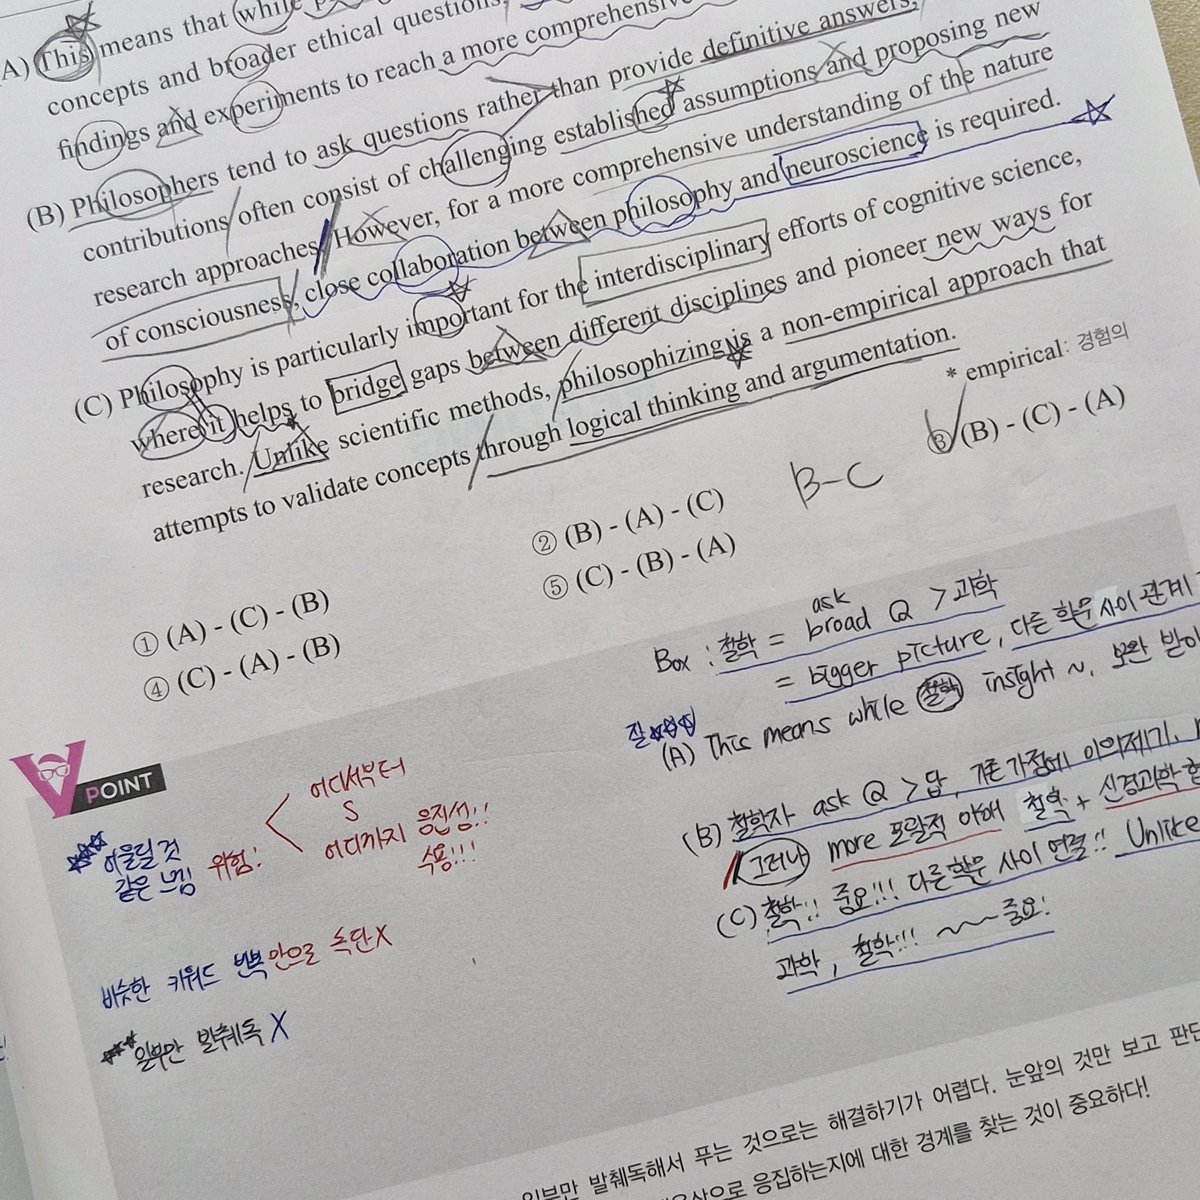 (A) This means that while
concepts and broader ethical questions,
findings and experiments to reach a more comprehensive
(B) Philosophers tend to ask questions rather than provide definitive answers,
contributions often consist of challenging established assumptions and proposing new
research approaches. However, for a more comprehensive understanding of the nature
of consciousness, close collaboration between philosophy and neuroscience is required.
(C) Philosophy is particularly important for the interdisciplinary efforts of cognitive science,
where it helps to bridge gaps between different disciplines and pioneer new ways for
research. Unlike scientific methods, philosophizing is a non-empirical approach that
attempts to validate concepts through logical thinking and argumentation.
* empirical: 경험의
① (A) - (C) - (B)
② (B) - (A) - (C)
③ (B) - (C) - (A)
④ (C) - (A) - (B)
⑤ (C) - (B) - (A)
B-C
ask
Box : 철학 = broad Q > 과학
= bigger picture, 다른 학문 사이 관계
(A) This means while 철학 insight ~, 보완 받아
(B) 철학자 ask Q > 답, 기존 가정에 이의제기,
그러나 more 포괄적 이해 철학 + 신경과학
(C) 철학!! 중요!!! 다른 학문 사이 연결!! Unlike
과학, 철학!!! 중요!
POINT
어울릴 것
같은 느낌 위험!
어디서부터
S
어디까지 응집성!!
수용!!!
비슷한 키워드 반복 만으로 속단 X
일부만 발췌독 X
일부만 발췌독해서 푸는 것으로는 해결하기가 어렵다. 눈앞의 것만 보고 판단
으로 응집하는지에 대한 경계를 찾는 것이 중요하다!